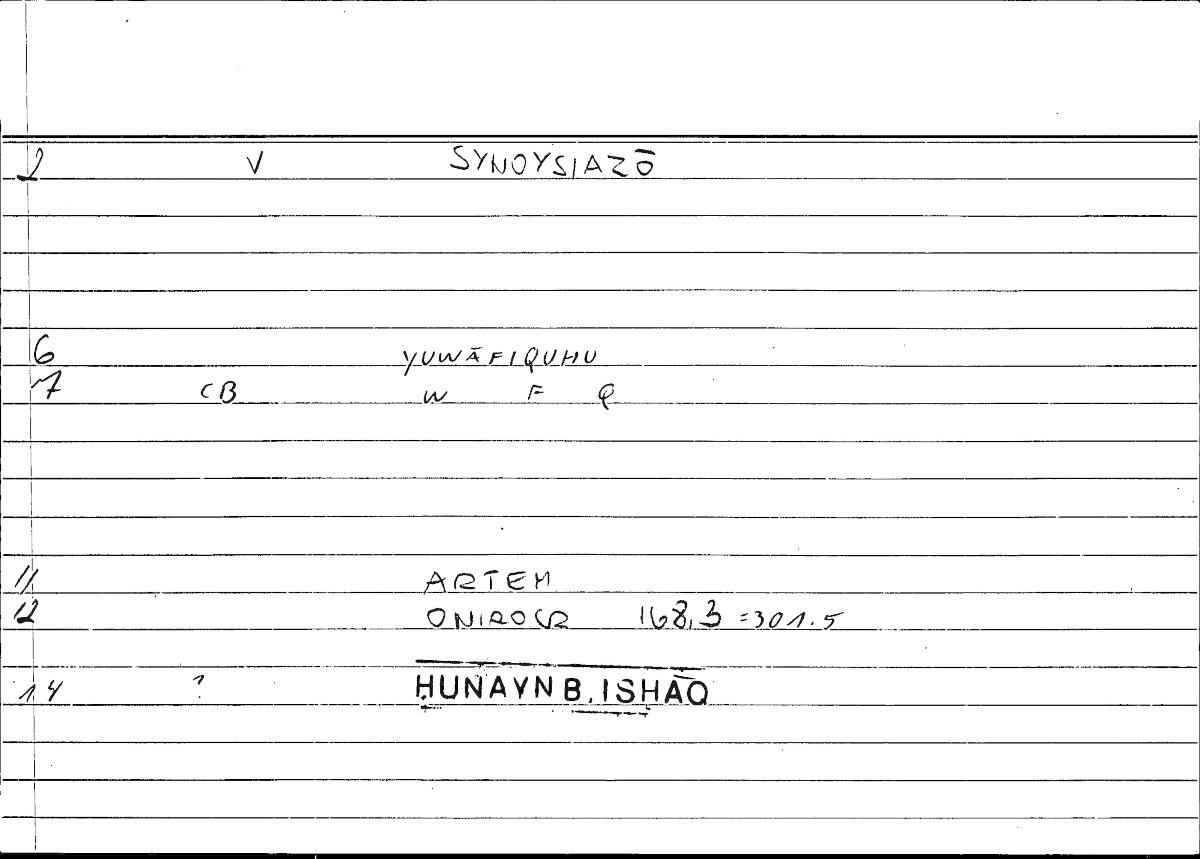 2 V SYNOYSIAZŌ
6 YUWĀFIQUHU
7 CB W F Q
11 ARTEM
12 ONIROCR 168,3 =301.5
14 ? ḤUNAYN B. ISḤĀQ